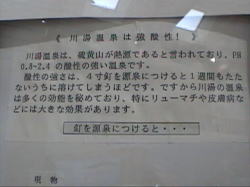 《 川湯温泉は強酸性! 》
川湯温泉は、硫黄山が熱源であると言われており、PH
0.8~2.4 の酸性の強い温泉です。
酸性の強さは、4寸釘を源泉につけると1週間もたた
ないうちに溶けてしまうほどです。ですから川湯の温泉
は多くの効能を秘めており、特にリューマチや皮膚病な
どには大きな効果があります。
釘を源泉につけると・・・
現 物